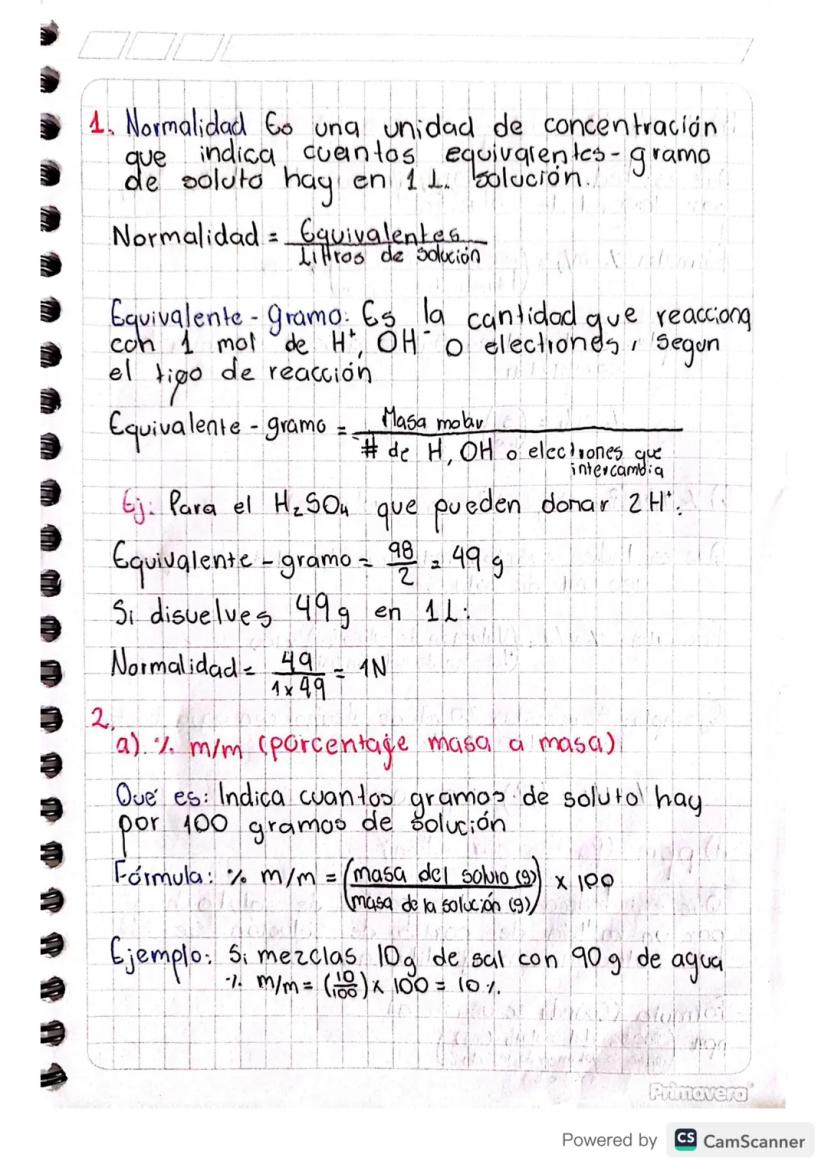 1. Normalidad Es una unidad de concentración
que indica cuantos equivalentes-gramo
de soluto hay en 1 L. solución.
Normalidad = Equivalentes
Litros de solución
Equivalente - gramo: Es la cantidad que reacciona
con 1 mol de H⁺, OH⁻ o electrones, segun
el tipo de reacción
Equivalente - gramo = Masa molar
# de H, OH o electrones que
intercambia
Ej: Para el H₂SO₄ que pueden donar 2H⁺:
Equivalente - gramo = 98/2 = 49 g
Si disuelves 49g en 1L:
Normalidad = 49/1x49 = 1N
2.
a). % m/m (porcentage masa a masa)
Qué es: Indica cuantos gramos de soluto hay
por 100 gramos de solución
Fórmula: % m/m = (masa del soluto (g)/masa de la solución (g)) x 100
Ejemplo: Si mezclas 10g de sal con 90 g de agua
% m/m = (10/100) x 100 = 10 %.
Primavera
Powered by CS CamScanner